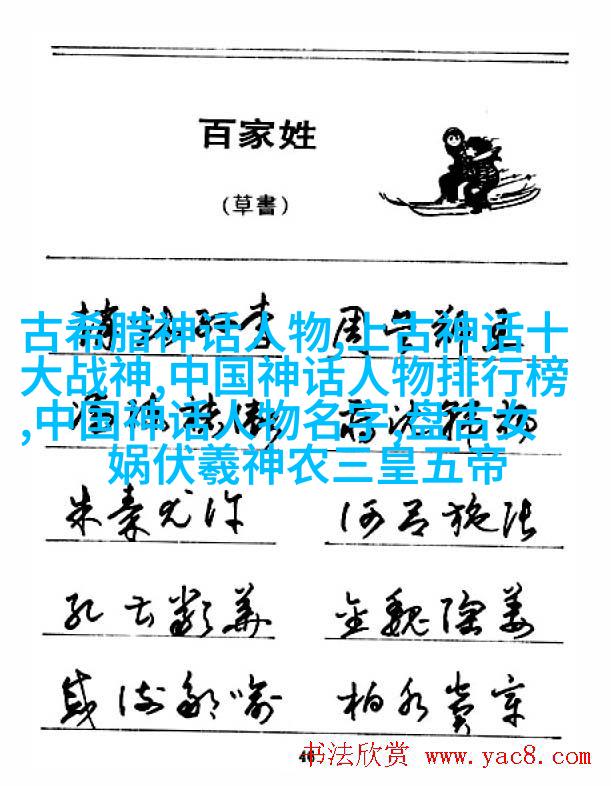 百家姓
(草書)
古希腊神话人物,上古神话十
大战神,中国神话人物排行榜
,中国神话人物名字,盘古女
娲伏羲神农三皇五帝
朱秦尤许 何吕施张
孔曹严华 金魏陶姜
戚谢邹喻 柏水窦章
46
书法欣赏 www.yac8.com